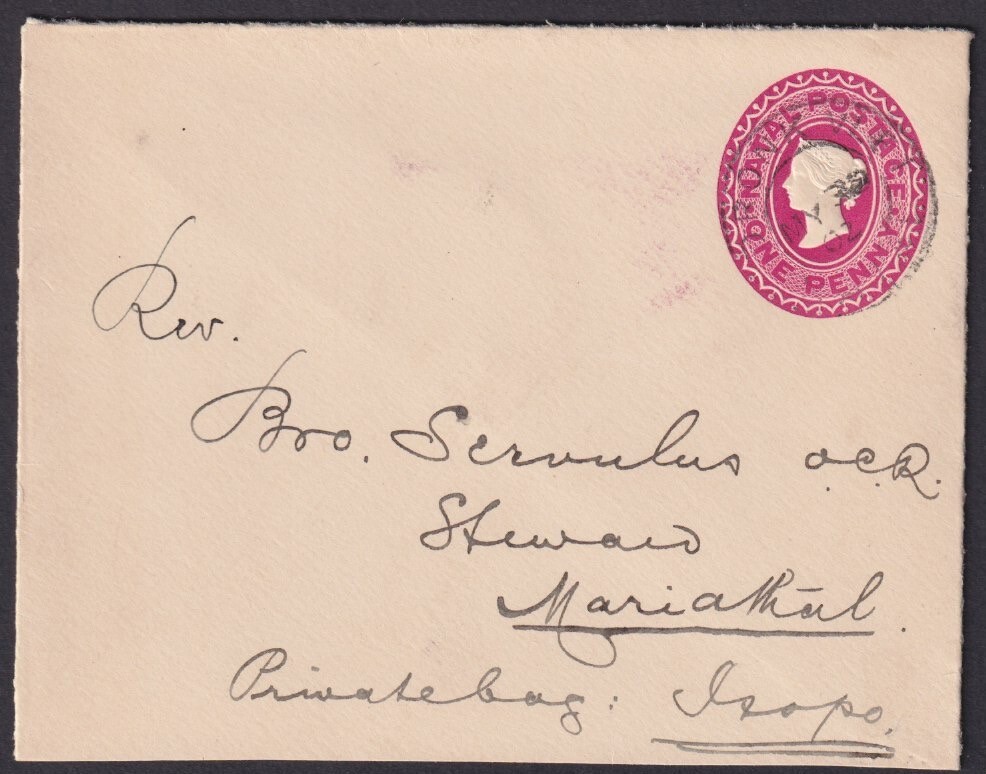 NATAL POSTAGE
ONE PENNY
02
Rev.
Bro. Servulus O.C.R.
Steward
Mariathal.
Privatebag: Ixopo.